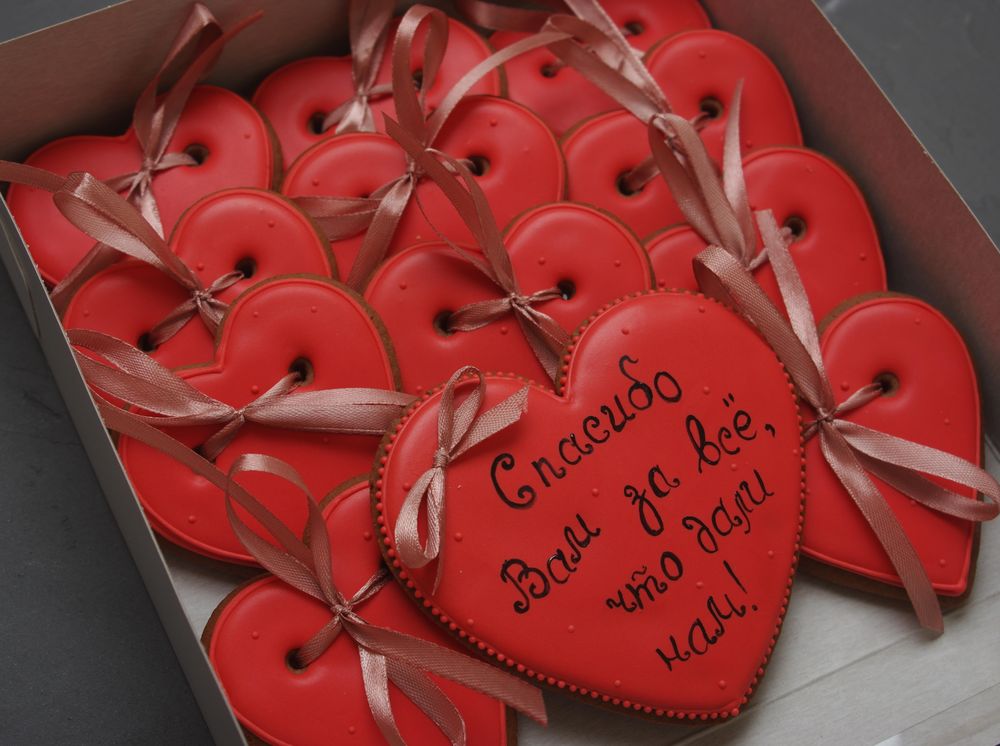 Спасибо
Вам за всё,
что дали
нам!